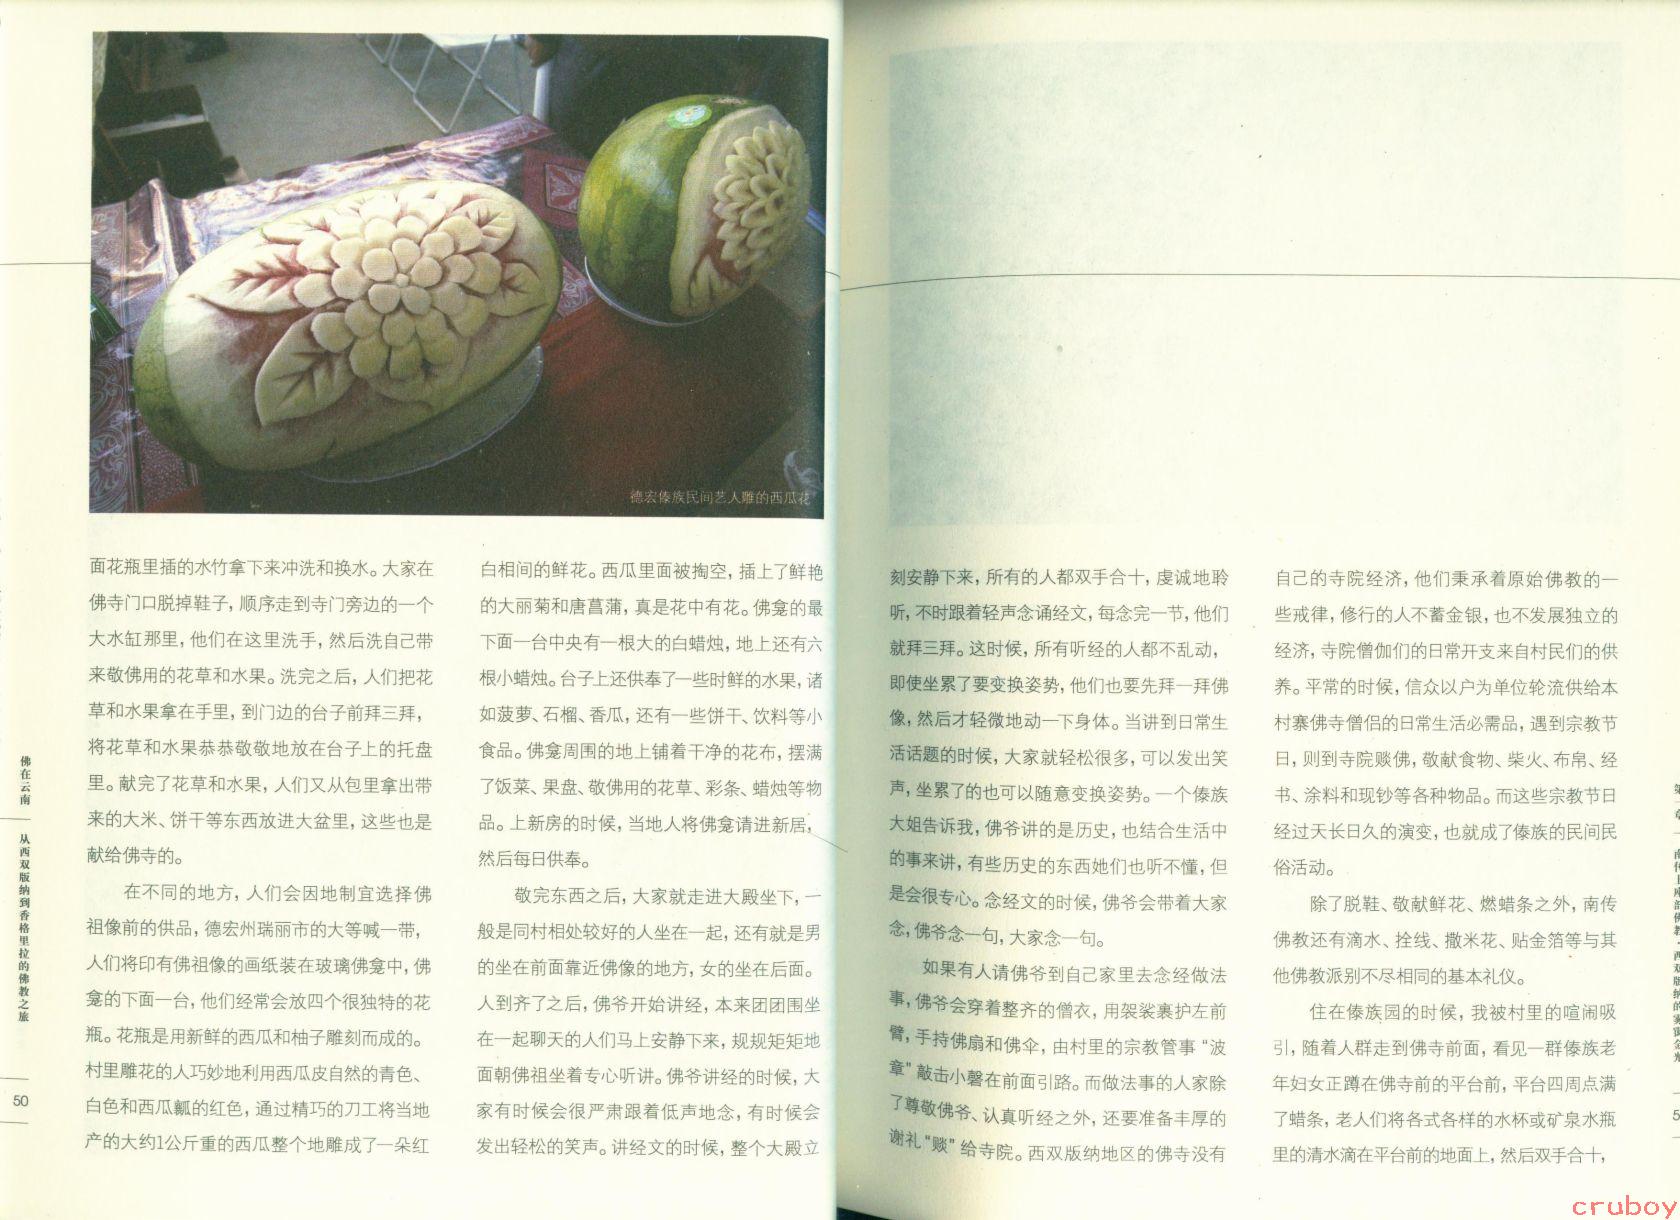 德宏傣族民间艺人雕的西瓜花
面花瓶里插的水竹拿下来冲洗和换水。大家在
佛寺门口脱掉鞋子，顺序走到寺门旁边的一个
大水缸那里，他们在这里洗手，然后洗自己带
来敬佛用的花草和水果。洗完之后，人们把花
草和水果拿在手里，到门边的台子前拜三拜，
将花草和水果恭恭敬敬地放在台子上的托盘
里。献完了花草和水果，人们又从包里拿出带
来的大米、饼干等东西放进大盆里，这些也是
献给佛寺的。
在不同的地方，人们会因地制宜选择佛
祖像前的供品，德宏州瑞丽市的大等喊一带，
人们将印有佛祖像的画纸装在玻璃佛龛中，佛
龛的下面一台，他们经常会放四个很独特的花
瓶。花瓶是用新鲜的西瓜和柚子雕刻而成的。
村里雕花的人巧妙地利用西瓜皮自然的青色、
白色和西瓜瓤的红色，通过精巧的刀工将当地
产的大约1公斤重的西瓜整个地雕成了一朵红
白相间的鲜花。西瓜里面被掏空，插上了鲜艳
的大丽菊和唐菖蒲，真是花中有花。佛龛的最
下面一台中央有一根大的白蜡烛，地上还有六
根小蜡烛。台子上还供奉了一些时鲜的水果，诸
如菠萝、石榴、香瓜，还有一些饼干、饮料等小
食品。佛龛周围的地上铺着干净的花布，摆满
了饭菜、果盘、敬佛用的花草、彩条、蜡烛等物
品。上新房的时候，当地人将佛龛请进新居，
然后每日供奉。
敬完东西之后，大家就走进大殿坐下，一
般是同村相处较好的人坐在一起，还有就是男
的坐在前面靠近佛像的地方，女的坐在后面。
人到齐了之后，佛爷开始讲经，本来团团围坐
在一起聊天的人们马上安静下来，规规矩矩地
面朝佛祖坐着专心听讲。佛爷讲经的时候，大
家有时候会很严肃跟着低声地念，有时候会
发出轻松的笑声。讲经文的时候，整个大殿立
佛在云南
从西双版纳到香格里拉的佛教之旅
50
刻安静下来，所有的人都双手合十，虔诚地聆
听，不时跟着轻声念诵经文，每念完一节，他们
就拜三拜。这时候，所有听经的人都不乱动，
即使坐累了要变换姿势，他们也要先拜一拜佛
像，然后才轻微地动一下身体。当讲到日常生
活话题的时候，大家就轻松很多，可以发出笑
声，坐累了的也可以随意变换姿势。一个傣族
大姐告诉我，佛爷讲的是历史，也结合生活中
的事来讲，有些历史的东西她们也听不懂，但
是会很专心。念经文的时候，佛爷会带着大家
念，佛爷念一句，大家念一句。
如果有人请佛爷到自己家里去念经做法
事，佛爷会穿着整齐的僧衣，用袈裟裹护左前
臂，手持佛扇和佛伞，由村里的宗教管事“波
章”敲击小磬在前面引路。而做法事的人家除
了尊敬佛爷、认真听经之外，还要准备丰厚的
谢礼“赕”给寺院。西双版纳地区的佛寺没有
自己的寺院经济，他们秉承着原始佛教的一
些戒律，修行的人不蓄金银，也不发展独立的
经济，寺院僧伽们的日常开支来自村民们的供
养。平常的时候，信众以户为单位轮流供给本
村寨佛寺僧侣的日常生活必需品，遇到宗教节
日，则到寺院赕佛，敬献食物、柴火、布帛、经
书、涂料和现钞等各种物品。而这些宗教节日
经过天长日久的演变，也就成了傣族的民间民
俗活动。
除了脱鞋、敬献鲜花、燃蜡条之外，南传
佛教还有滴水、拴线、撒米花、贴金箔等与其
他佛教派别不尽相同的基本礼仪。
住在傣族园的时候，我被村里的喧闹吸
引，随着人群走到佛寺前面，看见一群傣族老
年妇女正蹲在佛寺前的平台前，平台四周点满
了蜡条，老人们将各式各样的水杯或矿泉水瓶
里的清水滴在平台前的地面上，然后双手合十，
cruboy